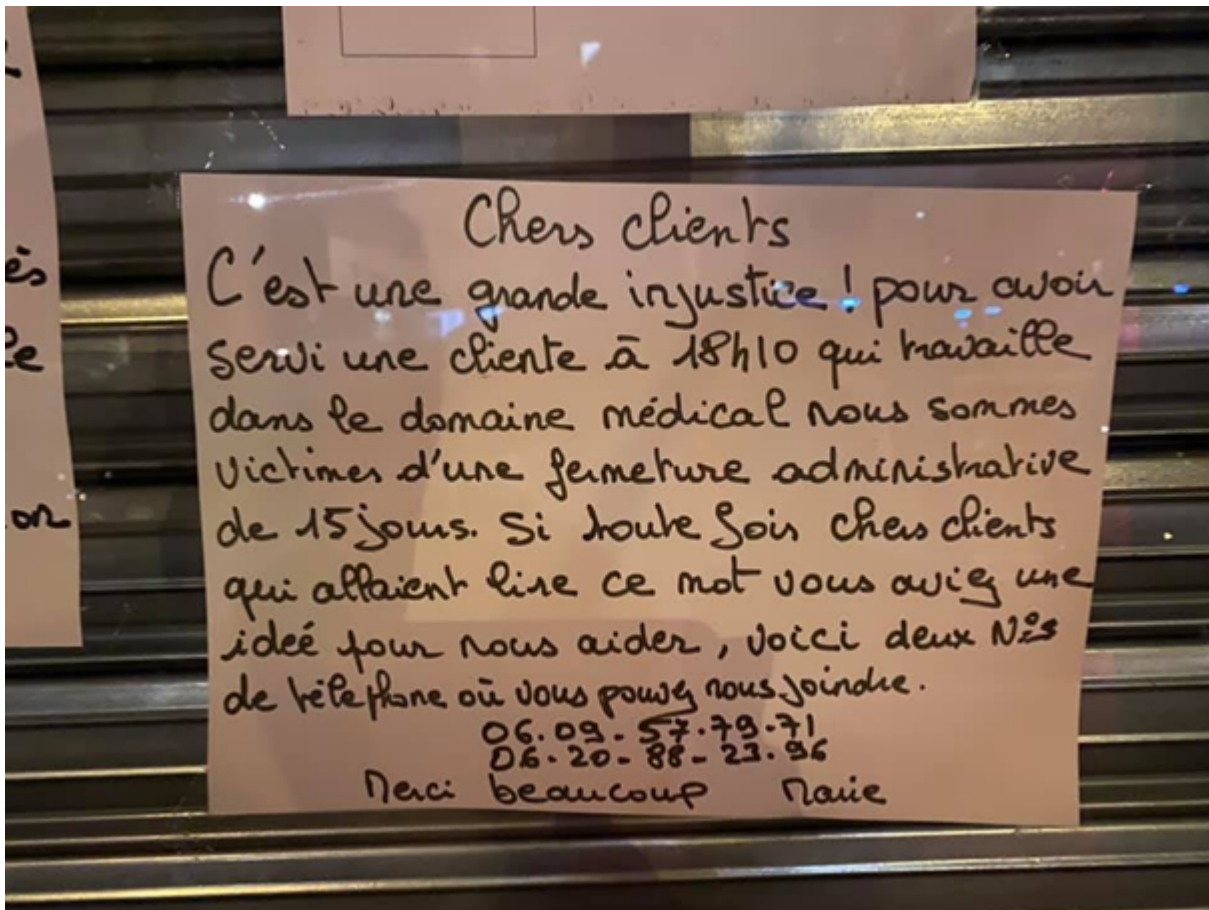 Chers clients
C'est une grande injustice ! pour avoir
servi une cliente à 18h10 qui travaille
dans le domaine médical nous sommes
victimes d'une fermeture administrative
de 15 jours. Si toute fois chers clients
qui allaient lire ce mot vous aviez une
ideé pour nous aider, voici deux N°s
de téléphone où vous pouvez nous joindre.
06.09.57.79.71
06.20.88.23.96
Merci beaucoup Marie
és
on